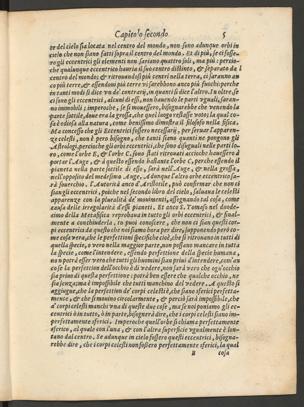 Capitolo secondo 5
te del cielo sia locata nel centro del mondo, non sono adunque orbi in
cielo che non siano fatti sopra il centro del mondo. Ex di più, se ci fusse
ro gli eccentrici gli elementi non sariano quattro soli, ma più : percio
che qualunque eccentrico hauria il suo centro distinto, & separato dal
centro del mondo; & ritrouandosi più centri nella terra, ci saranno an
co più terre, & essendoui più terre vi sarebbono anco più fuochi: perche
in tanti modi si dice vno de' contrarij, in quanti si dice l'altro. In oltre, se
ci sono gli eccentrici, alcuni di essi, non hauendo le parti vguali, saran-
no immobili; imperoche, se si mouessero, bisognarebbe che venendo la
parte sottile, doue era la grossa, che quel luogo restasse voto; la qual co-
sa è odiosa alla natura, come benissimo dimostra il filosofo nella fisica.
Ma concesso che gli Eccentrici fossero necessarij, per seruar l'apparen-
ze celesti, non è però bisogno, che tanti siano quanti ne pongono gli
Astrologi, perche gli orbi eccentrici, che sono disuguali nelle parti lo-
ro, come l'orbe E, & l'orbe C, sono stati ritrouati accioche hauessero à
portar l'Auge, & à questo essendo bastante l'orbe C, perche essendo il
pianeta nella parte sottile di esse, sarà nell'Auge, & nella grossa,
nell'opposito del medesimo Auge. Adunque l'altro orbe eccentrico sa-
rà souerchio. L'autorità anco d'Aristotile, può confermar che non ci
siano gli eccentrici, poiche nel secondo libro del cielo, saluaua le celesti
apparenze con la pluralità de' mouimenti, assegnando tal cosa, come
causa delle irregolarità d'essi pianeti. Et anco S. Tomaso nel duode-
cimo della Metafisica reprobaua in tutto gli orbi eccentrici, & final-
mente à concluderla, io posso conoscere, che non ci siano questi or-
bi eccentrici da questo che non siamo hora per dire, supponendo però co
me cosa vera, che le perfettioni specifiche cioè, che si ritrouano in tutti di
quella specie, ò vero nella maggior parte, non possano mancare in tutta
la specie, come l'intendere, essendo perfettione della specie humana,
non potrà esser vero che tutti gli huomini siano priui d'intendere, così an
cora se la perfettion dell'occhio è di vedere, non sarà vero che ogn'occhio
sia priuo di questa perfettione: potrà ben essere che qualche occhio, ne
sia senza; ma è impossibile che tutti manchino del vedere. A questo si
aggiunge, che la perfettion de' corpi celesti è, che siano sferici perfetta-
mente, & che si mouino circolarmente, & perciò sarà impossibile, che
i corpi celesti manchino di queste due cose, ma se noi poniamo gli ec-
centrici ò in tutto, ò in parte, bisognerà dire, che i corpi celesti siano im-
perfettamente sferici. Imperoche quell'orbe si chiama perfettamente
sferico, al quale con l'una, & con l'altra superficie vgualmente è lon-
tano dal centro. Se adunque in cielo fossero questi eccentrici, bisogna-
rebbe dire, che i corpi celesti non fossero perfettamente sferici, la qual
B cosa